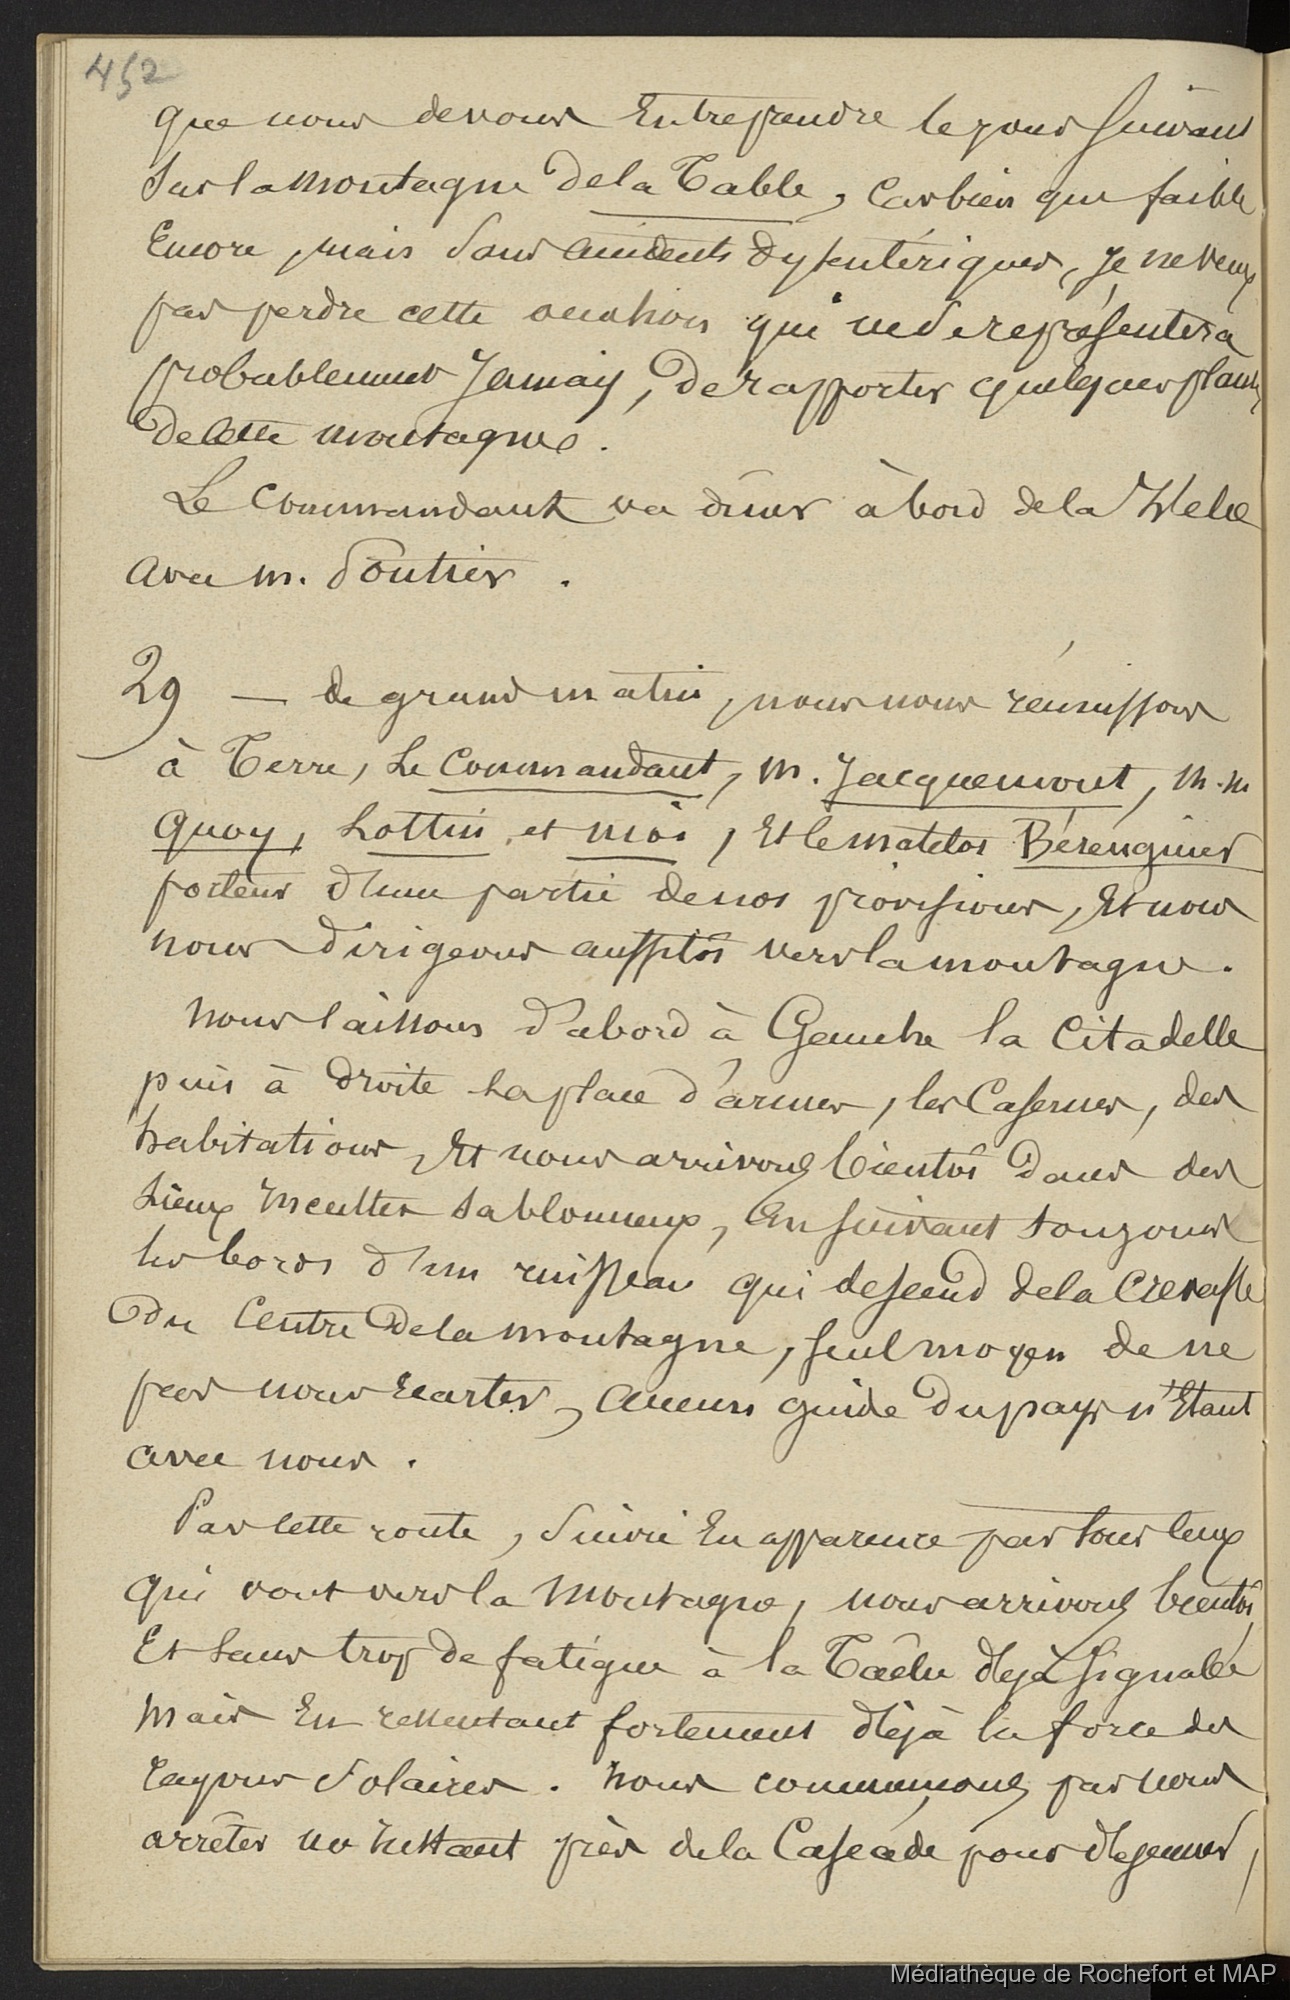 452
que nous devons Entreprendre le jour suivant
Sur la montagne de la Table, Car bien que faible
Encore, mais Sans accidents dyssentériques, je ne veux
pas perdre cette occasion qui ne se représentera
probablement Jamais, De rapporter quelques plantes
De cette montagne.
Le Commandant va diner à bord de la
avec M.
29 — de grand matin, nous nous réunissons
à Terre, Le Commandant, M. Jacquemont, M.M
Quoy, Lottin, et moi, Et le matelot Bérenguier
porteur d'une partie de nos provisions, Et nous
nous dirigeons aussitôt vers la montagne.
Nous laissons d'abord à Gauche la Citadelle
puis à droite La place d'armes, les Casernes, des
habitations, Et nous arrivons bientôt Dans des
Lieux incultes sablonneux, En suivant toujours
les bords d'un ruisseau qui descend de la crevasse
Du Centre De la montagne, seul moyen de ne
pas nous Ecarter, aucun guide Du pays n'Etant
avec nous.
Par cette route, Suivie En apparence par tous ceux
qui vont vers la Montagne, nous arrivons bientôt,
Et sans trop de fatigue à la déjà signalée
Mais En ressentant fortement déjà la force des
rayons Solaires. Nous commençons par nous
arrêter un Instant près de la Cascade pour déjeuner,
Médiathèque de Rochefort et MAP